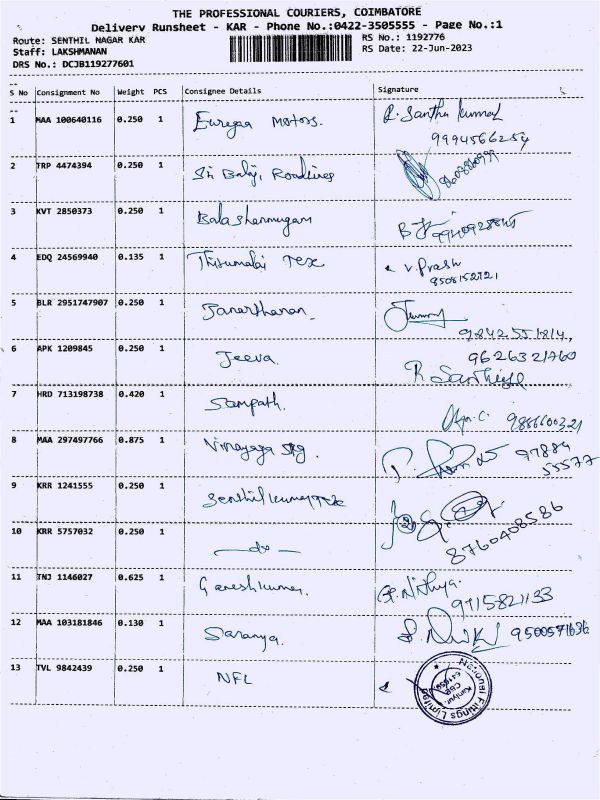 THE PROFESSIONAL COURIERS, COIMBATORE
Delivery Runsheet - KAR - Phone No.:0422-3505555 - Page No.:1
Route: SENTHIL NAGAR KAR RS No.: 1192776
Staff: LAKSHMANAN RS Date: 22-Jun-2023
DRS No.: DCJB119277601
S No Consignment No Weight PCS Consignee Details Signature
1 MAA 100640116 0.250 1 Eurega Motors. R. Santha kumar
9994566254
2 TRP 4474394 0.250 1 Sri Balaji Roadlines
3 KVT 2850373 0.250 1 Balashanmugam
4 EDQ 24569940 0.135 1 Thirumalai Tex V. Prash
8508152721
5 BLR 2951747907 0.250 1 Janarthanan
9842551814,
6 APK 1209845 0.250 1 Jeeva. 9626321760
7 HRD 713198738 0.420 1 Sampath.
9886600321
8 MAA 297497766 0.875 1 Vinayaga 97884
55577
9 KRR 1241555 0.250 1 Senthilkumar Tex
10 KRR 5757032 0.250 1 -do- 8760408586
11 TNJ 1146027 0.625 1 Ganeshkumar. G. Nithya.
9715821133
12 MAA 103181846 0.130 1 Saranya. 9500571636
13 TVL 9842439 0.250 1 NFL
National Fittings Limited
Kaniyur,
CBE
641659